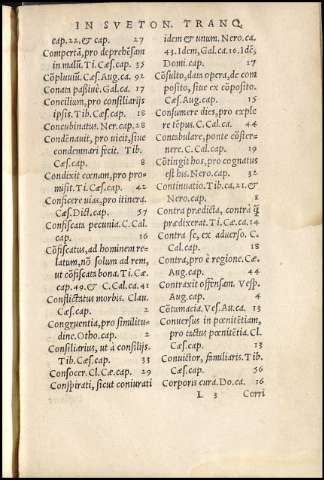 IN SVETON. TRANQ.
cap. 22. & cap. 27
Compertā, pro deprehēsam
in malū. Ti. Cæs. 35
Cōpluviū. Cæs. Aug. 92
Conata passive. Gal. ca. 17
Concilium, pro consiliarijs
ipsis. Tib. Cæs. cap. 18
Concubinatus. Ner. cap. 28
Condēnauit, pro uicit, siue
condemnari fecit. Tib.
Cæs. cap. 8
Condixit cœnam, pro pro-
misit. Ti. Cæs. cap. 42
Conficere uias, pro itinera.
Cæs. Dict. cap. 57
Confiscata pecunia. C. Cal.
cap. 16
Cōfiscatus, ad hominem re-
latum, nō solum ad rem,
ut cōfiscata bona. Ti. Cæ.
cap. 49. & C. Cal. ca. 41
Conflictatus morbis. Clau.
Cæs. cap. 2
Congruentia, pro similitu-
dine. Otho. cap. 2
Consiliarius, ut à consilijs.
Tib. Cæs. cap. 55
Consocer. Cl. Cæ. cap. 29
Conspirati, sicut coniurati
idem & unum. Nero. ca.
43. Idem, Gal. ca. 10. Idē,
Domi. cap. 17
Cōsulto, data opera, de com
posito, siue ex cōposito.
Cæs. Aug. cap. 15
Consumere dies, pro exple
re tēpus. C. Cal. ca. 44
Contabulare, ponte cōster-
nere. C. Cal. cap. 19
Cōtingit hos, pro cognatus
est his. Nero. cap. 32
Continuatio. Tib. ca. 21. &
Nero. cap. 8
Contra prædicta, contrà q̄
prædixerat. Ti. Cæ. ca. 14
Contra se, ex aduerso. C.
Cal. cap. 18
Contra, pro è regione. Cæ.
Aug. cap. 44
Contraxit offensam. Vesp.
Aug. cap. 4
Cōtumacia. Ves. Au. ca. 13
Conuersus in pœnitētiam,
pro tactus pœnitētia. Cl.
Cæs. cap. 13
Conuictor, familiaris. Tib.
Cæs. cap. 56
Corporis cura. Do. ca. 16
L 3 Corri